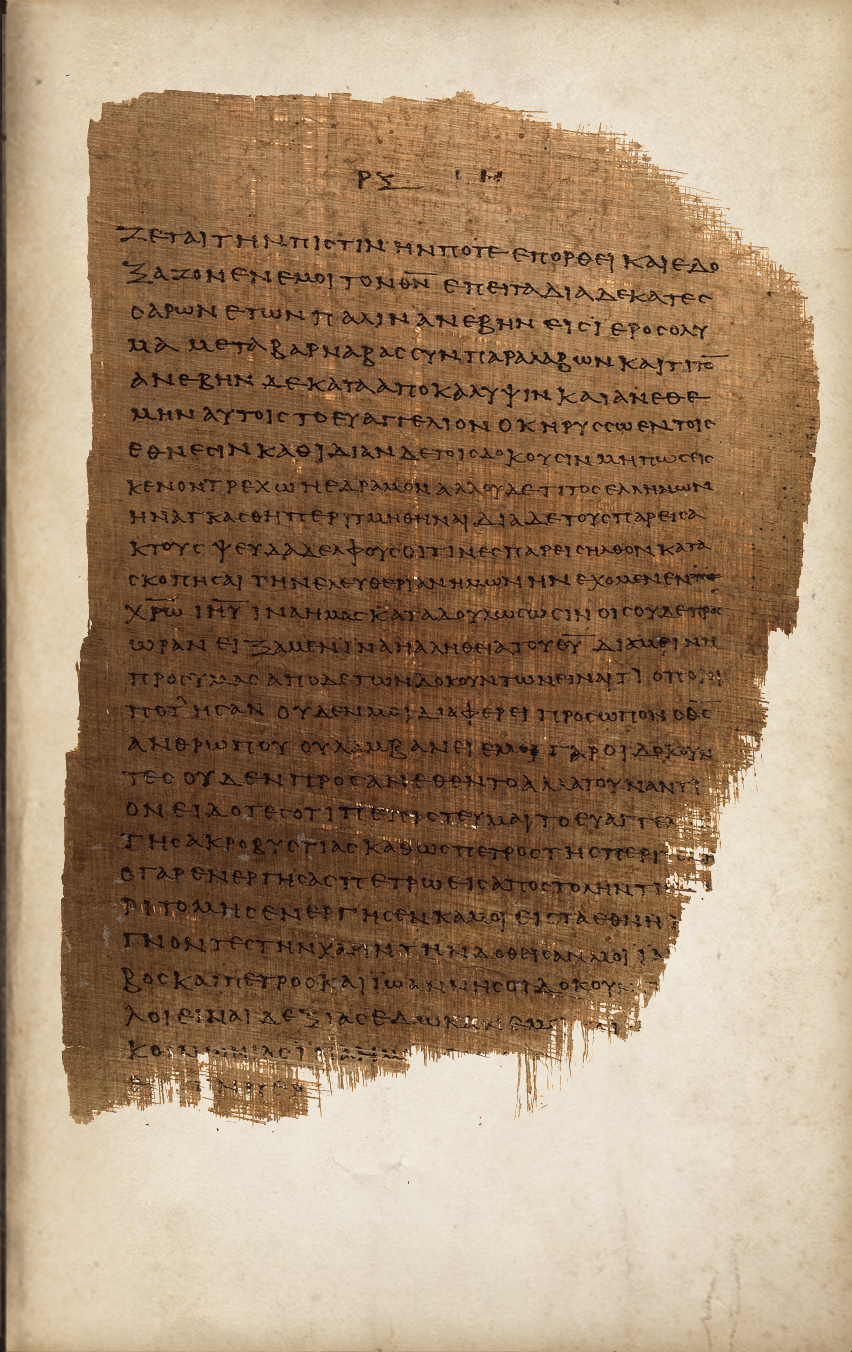 ΡΞ
ΖΕΤΑΙ ΤΗΝ ΠΙϹΤΙΝ ΗΝ ΠΟΤΕ ΕΠΟΡΘΕΙ ΚΑΙ ΕΔΟ
ΞΑΖΟΝ ΕΝ ΕΜΟΙ ΤΟΝ Θ̅Ν̅ ΕΠΕΙΤΑ ΔΙΑ ΔΕΚΑΤΕϹ
ϹΑΡΩΝ ΕΤΩΝ ΠΑΛΙΝ ΑΝΕΒΗΝ ΕΙϹ ΙΕΡΟϹΟΛΥ
ΜΑ ΜΕΤΑ ΒΑΡΝΑΒΑϹ ϹΥΝΠΑΡΑΛΑΒΩΝ ΚΑΙ ΤΙΤΟ̅
ΑΝΕΒΗΝ ΔΕ ΚΑΤΑ ΑΠΟΚΑΛΥΨΙΝ ΚΑΙ ΑΝΕΘΕ
ΜΗΝ ΑΥΤΟΙϹ ΤΟ ΕΥΑΓΓΕΛΙΟΝ Ο ΚΗΡΥϹϹΩ ΕΝ ΤΟΙϹ
ΕΘΝΕϹΙΝ ΚΑΘ ΙΔΙΑΝ ΔΕ ΤΟΙϹ ΔΟΚΟΥϹΙΝ ΜΗ ΠΩϹ ΕΙϹ
ΚΕΝΟΝ ΤΡΕΧΩ Η ΕΔΡΑΜΟΝ ΑΛΛ ΟΥΔΕ ΤΙΤΟϹ ΕΛΛΗΝ ΩΝ
ΗΝΑΓΚΑϹΘΗ ΠΕΡΙΤΜΗΘΗΝΑΙ ΔΙΑ ΔΕ ΤΟΥϹ ΠΑΡΕΙϹΑ
ΚΤΟΥϹ ΨΕΥΔΑΔΕΛΦΟΥϹ ΟΙΤΙΝΕϹ ΠΑΡΕΙϹΗΛΘΟΝ ΚΑΤΑ
ϹΚΟΠΗϹΑΙ ΤΗΝ ΕΛΕΥΘΕΡΙΑΝ ΗΜΩΝ ΗΝ ΕΧΟΜΕΝ ΕΝ
Χ̅Ρ̅Ω̅ Ι̅Η̅Υ̅ ΙΝΑ ΗΜΑϹ ΚΑΤΑΔΟΥΛΩϹΩϹΙΝ ΟΙϹ ΟΥΔΕ ΠΡΟϹ
ΩΡΑΝ ΕΙΞΑΜΕΝ ΙΝΑ Η ΑΛΗΘΕΙΑ ΤΟΥ Θ̅Υ̅ ΔΙΑΜΕΙΝΗ
ΠΡΟϹ ΥΜΑϹ ΑΠΟ ΔΕ ΤΩΝ ΔΟΚΟΥΝΤΩΝ ΕΙΝΑΙ ΤΙ ΟΠΟΙΟΙ
ΠΟΤ ΗϹΑΝ ΟΥΔΕΝ ΜΟΙ ΔΙΑΦΕΡΕΙ ΠΡΟϹΩΠΟΝ Ο Θ̅Ϲ̅
ΑΝΘΡΩΠΟΥ ΟΥ ΛΑΜΒΑΝΕΙ ΕΜΟΙ ΓΑΡ ΟΙ ΔΟΚΟΥΝ
ΤΕϹ ΟΥΔΕΝ ΠΡΟϹΑΝΕΘΕΝΤΟ ΑΛΛΑ ΤΟΥΝΑΝΤΙ
ΟΝ ΕΙΔΟΤΕϹ ΟΤΙ ΠΕΠΙϹΤΕΥΜΑΙ ΤΟ ΕΥΑΓΓΕΛ
ΤΗϹ ΑΚΡΟΒΥϹΤΙΑϹ ΚΑΘΩϹ ΠΕΤΡΟϹ ΤΗϹ ΠΕΡΙ
Ο ΓΑΡ ΕΝΕΡΓΗϹΑϹ ΠΕΤΡΩ ΕΙϹ ΑΠΟϹΤΟΛΗΝ Τ
ΡΙΤΟΜΗϹ ΕΝΕΡΓΗϹΕΝ ΚΑΜΟΙ ΕΙϹ ΤΑ ΕΘΝΗ
ΓΝΟΝΤΕϹ ΤΗΝ ΧΑΡΙΝ ΤΗΝ ΔΟΘΕΙϹΑΝ ΜΟΙ ΙΑ
ΒΟϹ ΚΑΙ ΠΕΤΡΟϹ ΚΑΙ ΙΩΑΝΝΗϹ ΟΙ ΔΟΚΟΥ
ΛΟΙ ΕΙΝΑΙ ΔΕΞΙΑϹ ΕΔΩΚΑΝ ΕΜΟΙ
ΚΟΙΝΩΝΙΑϹ ΙΝΑ ΗΜ